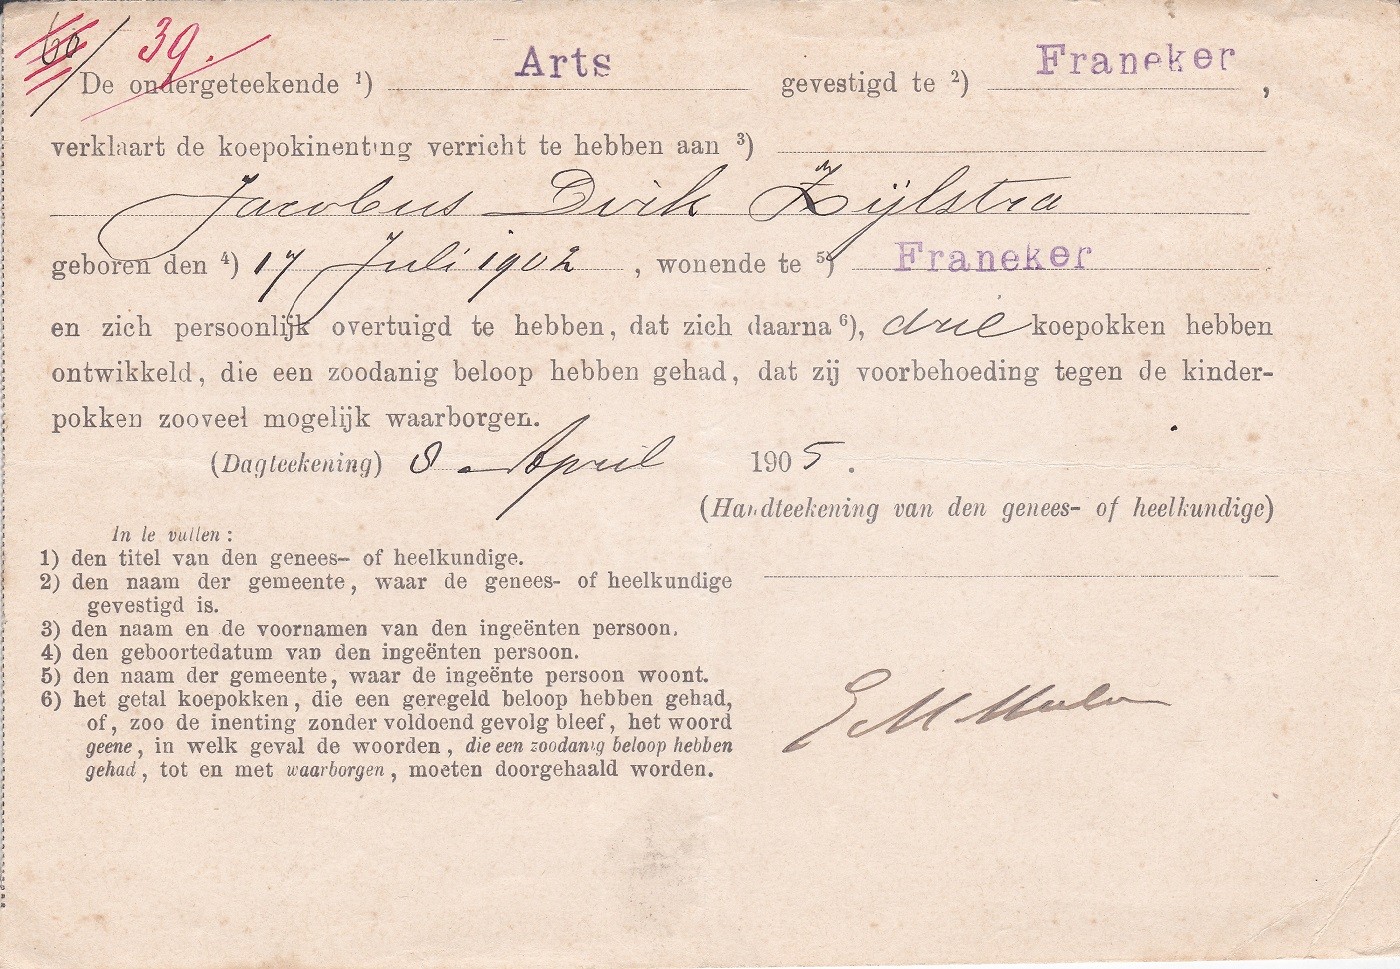 60 / 39.
De ondergeteekende ¹) Arts gevestigd te ²) Franeker,
verklaart de koepokinenting verricht te hebben aan ³)
Jacobus Dirk Zijlstra
geboren den ⁴) 17 Juli 1902, wonende te ⁵) Franeker
en zich persoonlijk overtuigd te hebben, dat zich daarna ⁶), drie koepokken hebben
ontwikkeld, die een zoodanig beloop hebben gehad, dat zij voorbehoeding tegen de kinder-
pokken zooveel mogelijk waarborgen.
(Dagteekening) 8 April 1905.
(Handteekening van den genees- of heelkundige)
In te vullen:
1) den titel van den genees- of heelkundige.
2) den naam der gemeente, waar de genees- of heelkundige
gevestigd is.
3) den naam en de voornamen van den ingeënten persoon.
4) den geboortedatum van den ingeënten persoon.
5) den naam der gemeente, waar de ingeënte persoon woont.
6) het getal koepokken, die een geregeld beloop hebben gehad,
of, zoo de inenting zonder voldoend gevolg bleef, het woord
geene, in welk geval de woorden, die een zoodanig beloop hebben
gehad, tot en met waarborgen, moeten doorgehaald worden.